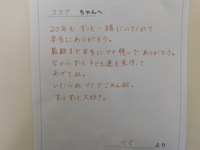 ココア ちゃんへ
20年も ずっと一緒にいてくれて
本当にありがとう。
最期まで本当にママ想いでありがとう。
空から ずっと 子ども達を見守って
あげてね。
いたらぬ ママでごめんね。
ずっとずっと大好き。
ママ より